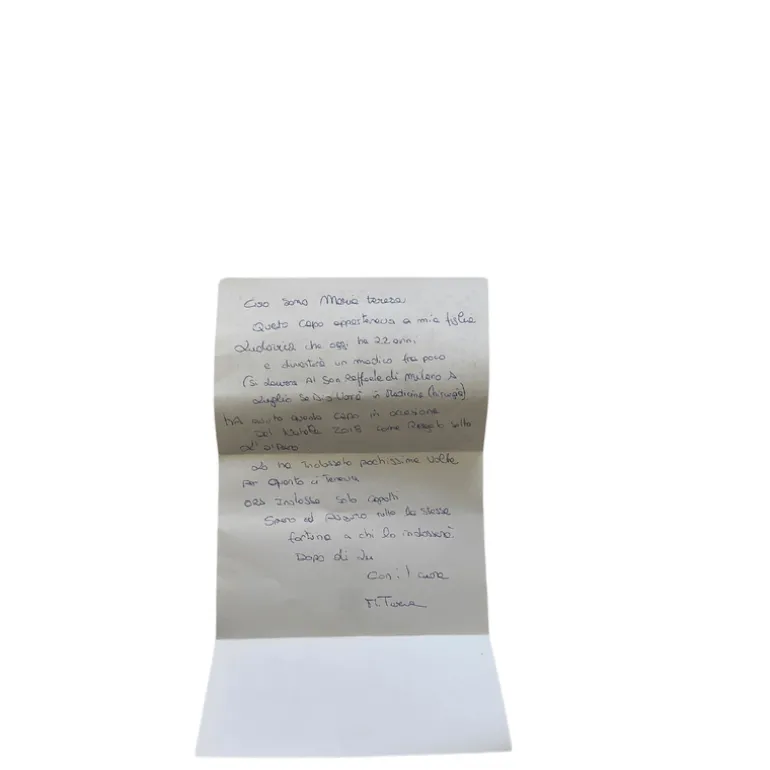 Ciao Sono Maria Teresa
Questo capo apparteneva a mia figlia
Ludovica che oggi ha 22 anni,
e diventerà un medico fra poco
(Si laurea Al San Raffaele di Milano A
Luglio Se Dio Vorrà in Medicina Chirurgia)
HA avuto questo capo in occasione
Del Natale 2018 come Regalo sotto
L'albero
Lo ha Indossato pochissime Volte
per quanto ci Teneva
ORA Indossa Solo Cappotti
Spero ed auguro tutta la stessa
fortuna a chi lo indosserà
Dopo di Lu
Con il cuore
M.Teresa